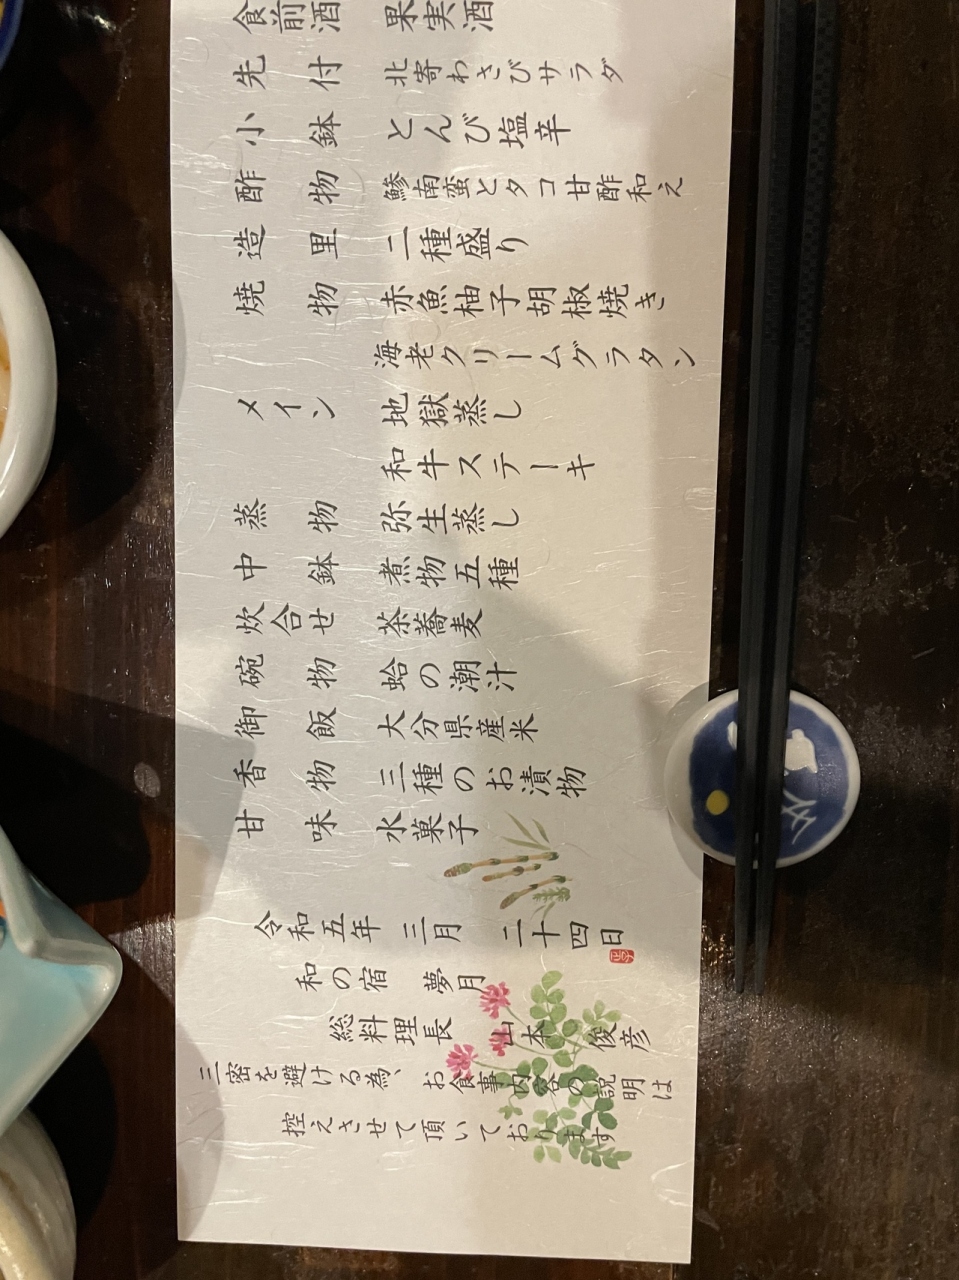 食前酒 果実酒
先付 北寄わさびサラダ
小鉢 とんび塩辛
酢物 鯵南蛮とタコ甘酢和え
造里 二種盛り
焼物 赤魚柚子胡椒焼き
海老クリームグラタン
メイン 地獄蒸し
和牛ステーキ
蒸物 弥生蒸し
中鉢 煮物五種
炊合せ 茶蕎麦
御碗物 蛤の潮汁
御飯 大分県産米
香物 三種のお漬物
甘味 水菓子
令和五年 三月 二十四日
和の宿 夢月
総料理長 山本 俊彦
三密を避ける為、お食事内容の説明は
控えさせて頂いております